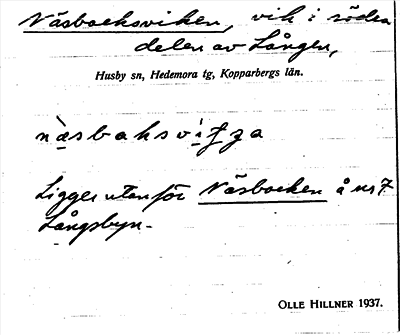 Näsbacksviken, vik i södra
delen av Lången,
Husby sn, Hedemora tg, Kopparbergs län.
Ligger utanför Näsbacken å nr 7
Långsbyn.
OLLE HILLNER 1937.